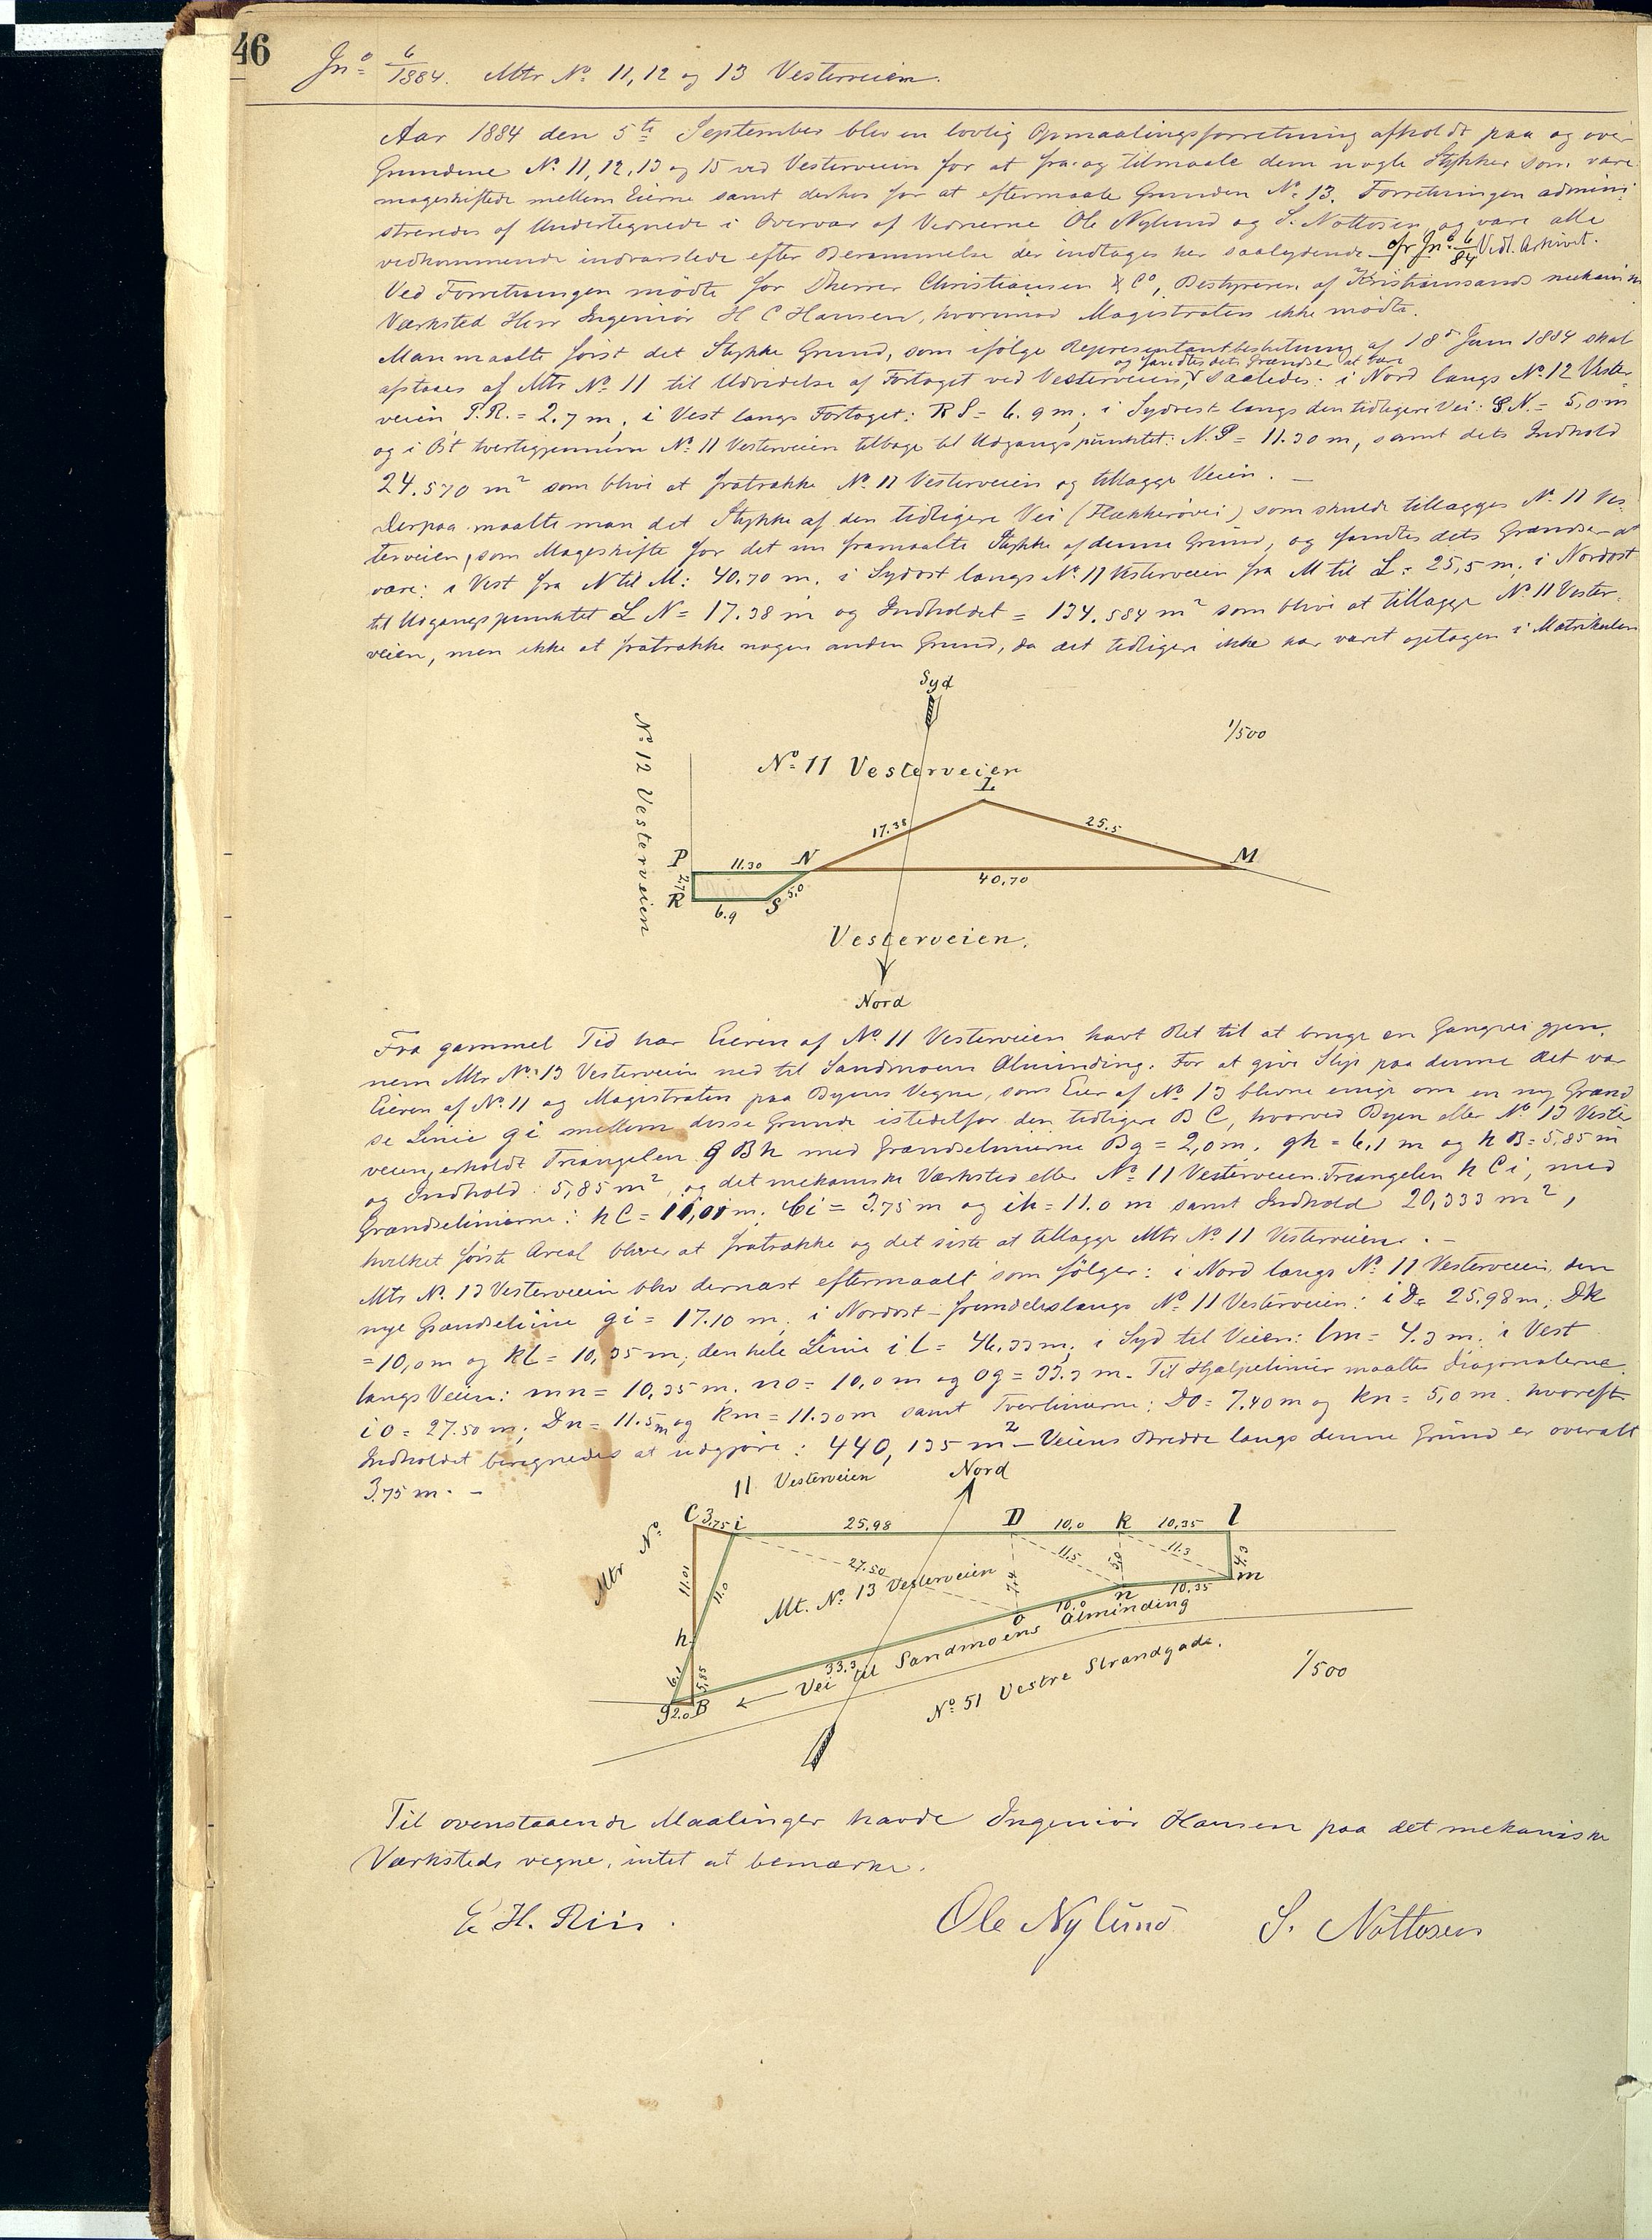 46
Jnº 6/1884. Mtr Nº 11, 12 og 13 Vesterveien.
Aar 1884 den 5te September blev en lovlig Opmaalingsforretning afholdt paa og over
Grundene Nº 11, 12, 13 og 15 ved Vesterveien for at fra og tilmaale dem nogle Stykker som vare
mageskiftede mellem Eierne samt derhos for at eftermaale Grunden Nº 13. Forretningen admini-
streredes af Undertegnede i Overvær af Vidnerne Ole Nylund og S. Nottosen og vare alle
vedkommende indvarslede efter Berammelse der indtages her saalydende cfr Jnº 6/84 Vedl. Arkivet.
Ved Forretningen mødte for Dherrer Christiansen & Cº, Bestyreren af Kristianssands mekaniske
Værksted Herr Ingeniør H C Hansen, hvorimod Magistraten ikke mødte.
Man maalte først det Stykke Grund, som ifølge Representantbeslutning af 18de Juni 1884 skal
og fandtes dets Grændser at være
afstaaes af Mtr Nº 11 til Udvidelse af Fortoget ved Vesterveien, saaledes: i Nord langs Nº 12 Vester-
veien P.R. = 2.7 m, i Vest langs Fortoget: RS = 6.9 m; i Sydvest langs den tidligere Vei: S.N. = 5,0 m
og i Øst tvertigjennem Nº 11 Vesterveien tilbage til Udgangspunktet: N.P = 11.30 m, samt dets Indhold
24.570 m² som blive at fratrække Nº 11 Vesterveien og tillægge Veien. —
Derpaa maalte man det Stykke af den tidligere Vei (Flekkerøvei) som skulde tillægges Nº 11 Ves-
terveien, som Mageskifte for det nu framaalte Stykke af denne Grund, og fandtes dets Grændser at
være: i Vest fra N til M: 40.70 m. i Sydost langs Nº 11 Vesterveien fra M til L = 25,5 m; i Nordost
til Udgangspunktet L N = 17.38 m og Indholdet = 134.584 m² som blive at tillægge Nº 11 Vester-
veien, men ikke at fratrække nogen anden Grund, da det tidligere ikke har været optagen i Matrikulen
Syd
1/500
Nº 12 Vesterveien
Nº 11 Vesterveien
L
17.38
25.5
P
11.30
N
M
2,7
40,70
R
6.9
S
5,0
Vesterveien.
Nord
Fra gammel Tid har Eieren af Nº 11 Vesterveien havt Ret til at bruge en Gangvei gjen-
nem Mtr Nº 13 Vesterveien ned til Sandmoens Alminding. For at give Slip paa denne Ret var
Eieren af Nº 11 og Magistraten paa Byens Vegne, som Eier af Nº 13 blevne enige om en ny Grænd-
se Linie gi mellem disse Grunde istedetfor den tidligere B C, hvorved Byen eller Nº 13 Vester
veien, erholdt Triangelen g B h med Grændselinierne Bg = 2,0 m. gh = 6,1 m og h B = 5,85 m
og Indhold: 5,85 m², og det mekaniske Værksted eller Nº 11 Vesterveien Triangelen h C i, med
Grændselinierne: h C = 11,01 m; Ci = 3.75 m og ih = 11.0 m samt Indhold 20,333 m²,
hvilket første Areal bliver at fratrække og det siste at tillægge Mtr Nº 11 Vesterveien. —
Mtr Nº 13 Vesterveien blev dernæst eftermaalt som følger: i Nord langs Nº 11 Vesterveien, den
nye Grændselinie gi = 17.10 m; i Nordost fremdeles langs Nº 11 Vesterveien: i D = 25.98 m; Dk
= 10,0 m og kl = 10,35 m; den hele Linie i l = 46.33 m; i Syd til Veien: lm = 4.3 m; i Vest
langs Veien: mn = 10,35 m. no = 10,0 m og og = 33.3 m. Til Hjælpelinier maaltes Diagonalerne
i o = 27.50 m; Dn = 11.5 m og km = 11.30 m samt Tverlinierne: Do = 7.40 m og kn = 5,0 m. hvorefter
Indholdet beregnedes at udgjøre: 440,135 m² — Veiens Bredde langs denne Grund er overalt
3.75 m. —
Mtr Nº 11 Vesterveien
Nord
C 3,75 i
25.98
D
10,0
k
10,35
l
11.01
11.0
27.50
7.4
11,5
5,0
11.3
4.3
Mt. Nº 13 Vesterveien
m
10.35
n
10.0
o
h
6,1
5,85
33.3
g 2.0 B
← Vei til Sandmoens Alminding
Nº 51 Vestre Strandgade.
1/500
Til ovenstaaende Maalinger havde Ingeniør Hansen paa det mekaniske
Værksteds vegne, intet at bemærke.
E. H. Riis.
Ole Nylund
S. Nottosen